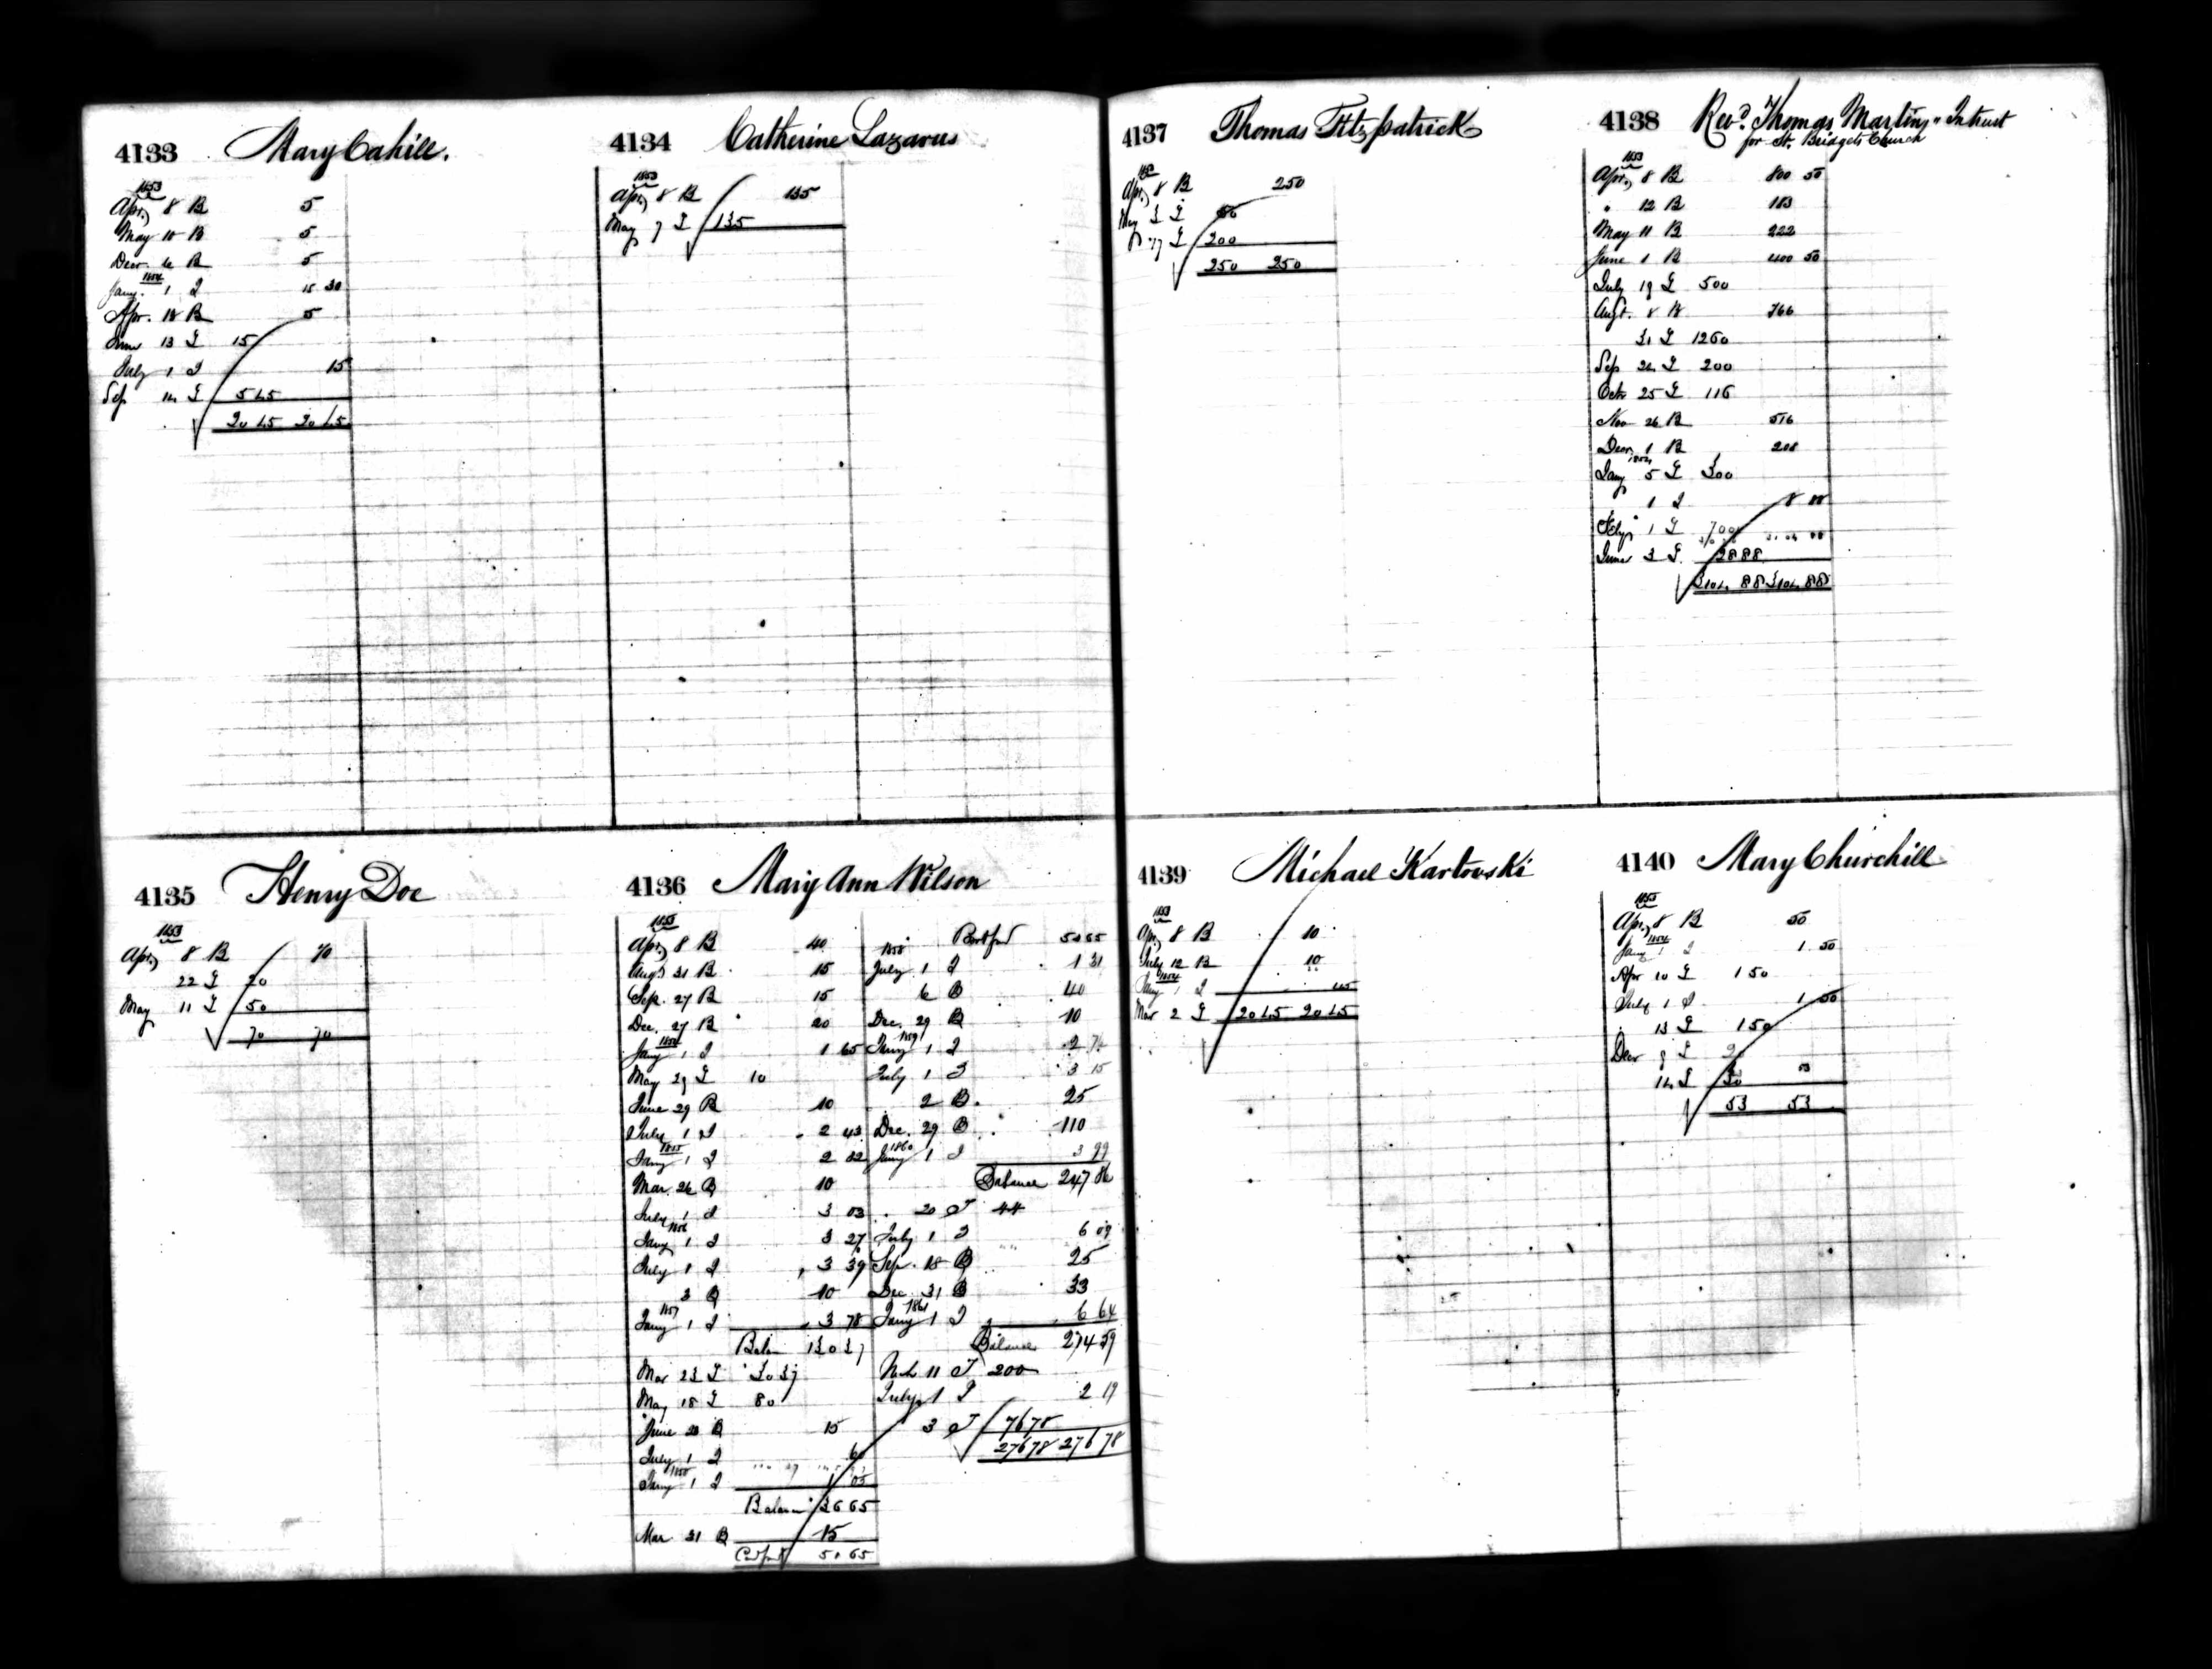 4133 Mary Cahill.
1853
Apr. 8 B 5
May 10 B 5
Decr. 6 B 5
1854
Jany. 1 I 30
Apr. 18 B 5
June 13 T 15
July 1 I 15
Sep 14 T 5 45
20 45 20 45
4134 Catherine Lazarus
1853
Apr. 8 B 135
May 7 T 135
4135 Henry Doe
1853
Apr. 8 B 70
22 T 20
May 11 T 50
70 70
4136 Mary Ann Wilson
1853
Apr. 8 B 40
Augt 31 B 15
Sep. 27 B 15
Dec. 27 B 20
1854
Jany 1 I 1 65
May 29 T 10
June 29 B 10
July 1 I 2 43
1855
Jany 1 I 2 82
Mar. 26 B 10
July 1 I 3 03
1856
Jany 1 I 3 27
July 1 I 3 39
3 B 10
1857
Jany 1 I 3 78
Balan 130 37
Mar 23 T 30 37
May 18 T 80
June 20 B 15
July 1 I 60
1858
Jany 1 I 1 05
Balan 36 65
Mar 31 B 15
Cardfwd 51 65
Brotfwd 51 65
1858
July 1 I 1 31
6 B 40
Dec. 29 B 10
1859
Jany 1 I 2 74
July 1 I 3 15
2 B 25
Dec. 29 B 110
1860
Jany 1 I 3 99
Balance 247 84
20 T 44
July 1 I 6 09
Sep. 18 B 25
Dec. 31 B 33
1861
Jany 1 I 6 64
Balance 274 59
Mch 11 T 200
July 1 I 2 19
3 T 76 78
276 78 276 78
4137 Thomas Fitzpatrick
Apr. 8 B 250
May 3 T 50
17 T 200
250 250
4138 Revd. Thomas Martin, Intrust
for St. Bridgets Church
1853
Apr. 8 B 800 50
" 12 B 183
May 11 B 222
June 1 B 400 50
July 19 T 500
Augt. 8 B 766
31 T 1260
Sep 24 T 200
Octr 25 T 116
Nov 26 B 516
Decr. 1 B 208
1854
Jany 5 T 300
1 I 8 88
Feby 1 T 700
June 3 T 28 88
3104 88 3104 88
4139 Michael Kartouski
1853
Apr. 8 B 10
July 12 B 10
1854
Jany 1 I 45
Mar 2 T 20 45 20 45
4140 Mary Churchill
1853
Apr. 8 B 50
1854
Jany 1 I 1 50
Apr 10 T 1 50
July 1 I 1 50
13 T 1 50
Decr 9 T
14 T
53 53